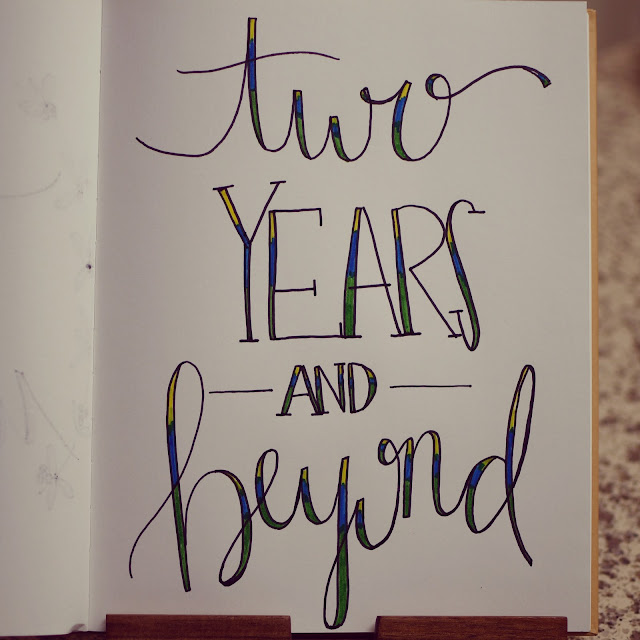 two
YEARS
AND
beyond